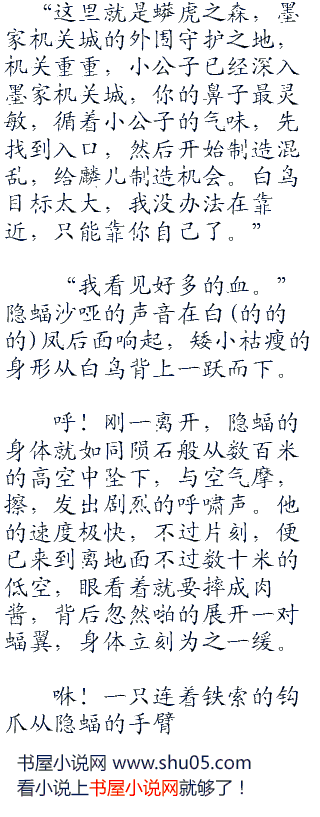 “这里就是蟒虎之森，墨
家机关城的外围守护之地，
机关重重，小公子已经深入
墨家机关城，你的鼻子最灵
敏，循着小公子的气味，先
找到入口，然后开始制造混
乱，给麟儿制造机会。白鸟
目标太大，我没办法在靠
近，只能靠你自己了。”
“我看见好多的血。”
隐蝠沙哑的声音在白(的的
的)凤后面响起，矮小枯瘦的
身形从白鸟背上一跃而下。
呼！刚一离开，隐蝠的
身体就如同陨石般从数百米
的高空中坠下，与空气摩，
擦，发出剧烈的呼啸声。他
的速度极快，不过片刻，便
已来到离地面不过数十米的
低空，眼看着就要摔成肉
酱，背后忽然啪的展开一对
蝠翼，身体立刻为之一缓。
咻！一只连着铁索的钩
爪从隐蝠的手臂
书屋小说网 www.shu05.com
看小说上书屋小说网就够了！